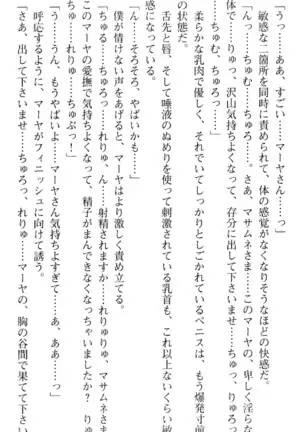 「うっ、ああ、すごい……マーヤさん……っ」
敏感な二箇所を同時に責められて、体の感覚がなくなりそうなほどの快感だ。
「んっ……ちゅむ……ちゅろっ……。さあ、マサムネさま……このマーヤの、卑しく淫ら
体で……りゅっ、沢山気持ちよくなって、存分に出して下さいませ……ちゅろ、りゅろっ
……ちゅむ、ちゅろっ……」
柔らかな乳肉で優しく、それでいてしっかりとしごかれているペニスは、もう爆発寸前
の状態だ。
舌先と唇、そして唾液のぬめりを使って刺激されている乳首も、これ以上ないくらい敏
感になっている。
「んっ……そろそろ、やばいかも……」
僕が情けない声をあげると、マーヤはより激しく責め立てる。
「ちゅる……ちゅろっ……れりゅ、ん……射精されますか……れりゅりゅ、マサムネさま
このマーヤの愛撫で気持ちよくなって、精子がまんできなくなっちゃいましたか? りゅ
ちゅ、れりゅ、ちゅぷっ!」
「う……うん、もうやばいよ……マーヤさん気持ちよすぎて……あ、ああ……っ」
呼応するように、マーヤがフィニッシュに向けて誘う。
「さあ、出して下さいませ……ちゅろっ、れりゅ……マーヤの、胸の谷間で果てて下さい